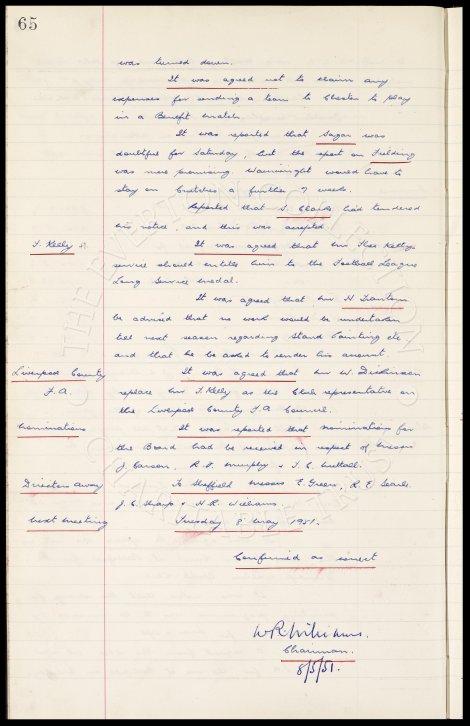 65
was turned down.
It was agreed not to claim any
expenses for sending a team to Chester to play
in a Benefit match.
It was reported that Sagar was
doubtful for Saturday, but the report on Fielding
was more promising. Wainwright would have to
stay on crutches a further 7 weeks.
Reported that T. Clarke had tendered
his notice, and this was accepted.
T. Kelly It was agreed that Mr Theo Kelly's
service should entitle him to the Football League
Long Service medal.
It was agreed that Mr H
be advised that no work would be undertaken
till next season regarding Stand Painting etc
and that he be asked to render his account.
Liverpool County It was agreed that Mr W. Dickinson
F.A. replace Mr T. Kelly as the Club representative on
the Liverpool County F.A Council.
Nominations It was reported that nominations for
the Board had be received in respect of Messrs
J. Carson, R. F. Murphy & T. C. Nuttall.
Directors away To Sheffield Messrs E. Green, R. E. Searle,
J. C. Sharp & W. R. Williams.
Next meeting Tuesday 8 May 1951.
Confirmed as correct
W R Williams.
Chairman.
8/5/51.